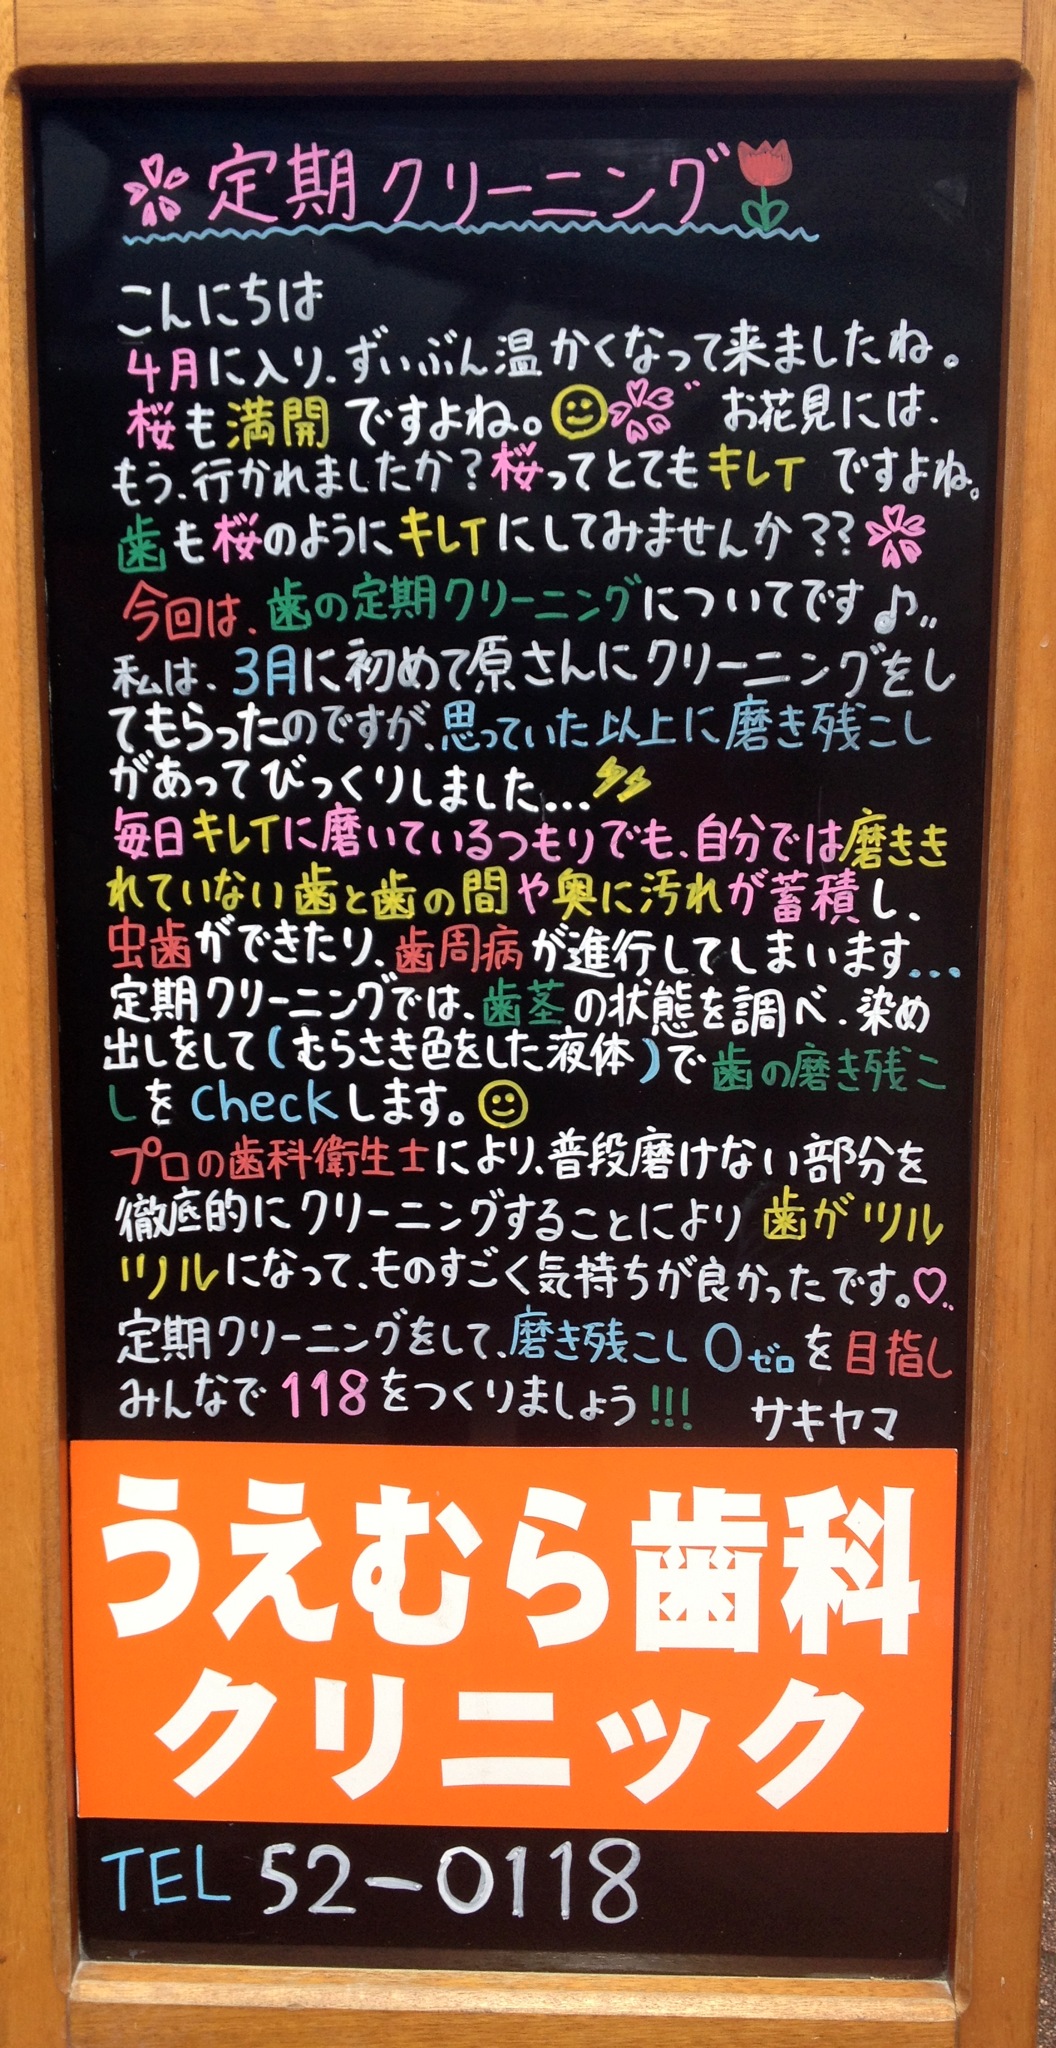 定期クリーニング
こんにちは
4月に入り、ずいぶん温かくなって来ましたね。
桜も満開ですよね。お花見には、
もう、行かれましたか?桜ってとてもキレイですよね。
歯も桜のようにキレイにしてみませんか??
今回は、歯の定期クリーニングについてです♪
私は、3月に初めて原さんにクリーニングをし
てもらったのですが、思っていた以上に磨き残こし
があってびっくりしました...
毎日キレイに磨いているつもりでも、自分では磨きき
れていない歯と歯の間や奥に汚れが蓄積し、
虫歯ができたり、歯周病が進行してしまいます...
定期クリーニングでは、歯茎の状態を調べ、染め
出しをして(むらさき色をした液体)で歯の磨き残こ
しをcheckします。
プロの歯科衛生士により、普段磨けない部分を
徹底的にクリーニングすることにより歯がツル
ツルになって、ものすごく気持ちが良かったです。♡
定期クリーニングをして、磨き残こし0ゼロを目指し
みんなで118をつくりましょう!!! サキヤマ
うえむら歯科
クリニック
TEL 52-0118